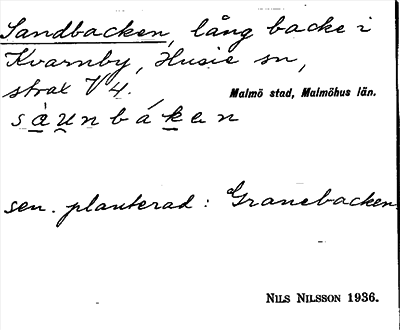 Sandbacken, lång backe i
Kvarnby, Husie sn,
strax V 4.
Malmö stad, Malmöhus län.
sàu̲nbák̲en
sen. planterad: Granebacken.
NILS NILSSON 1936.